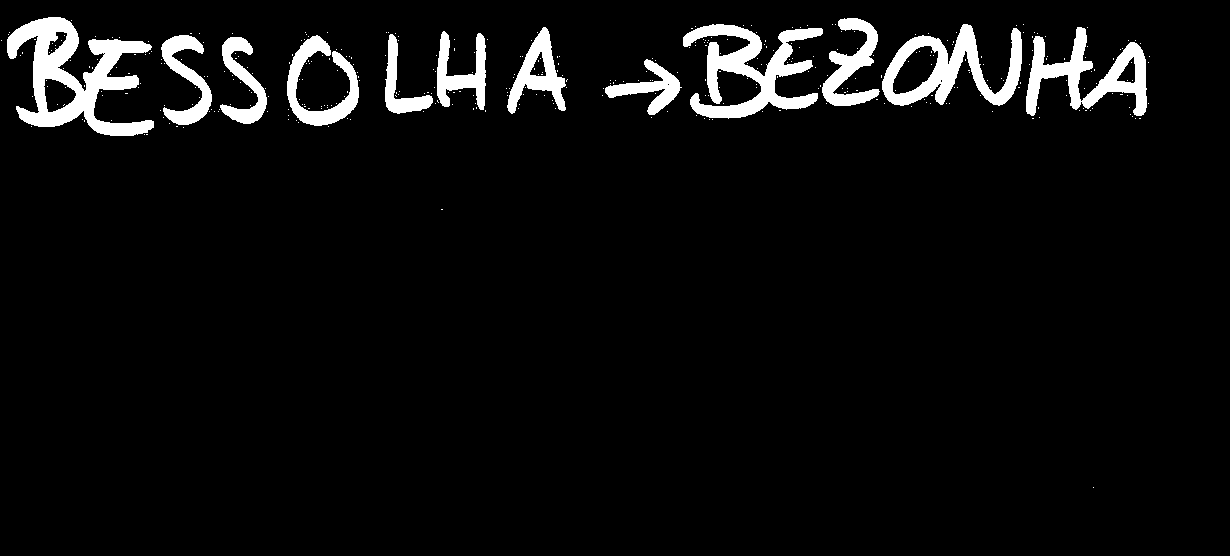 BESSOLHA → BEZONHA